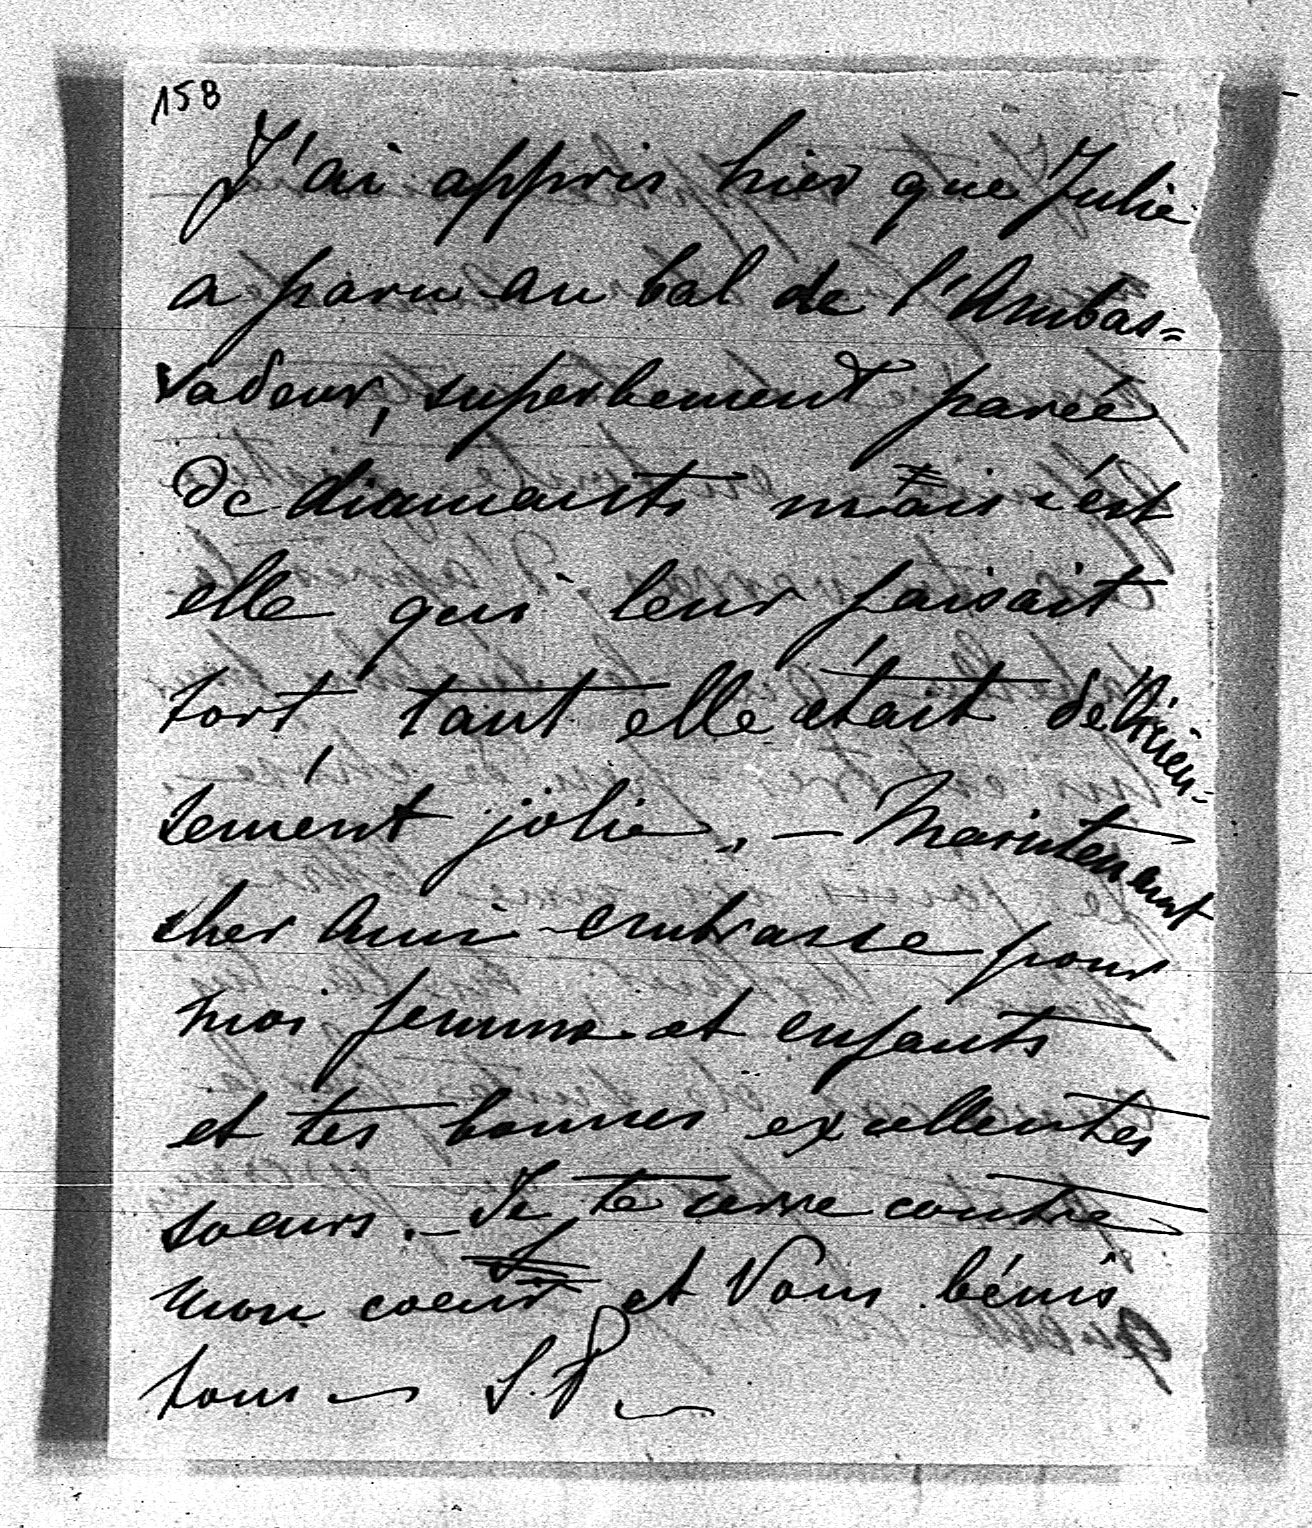 158
J'ai appris hier que Julie
a paru au bal de l'Ambas=
sadeur, superbement parée
de diamants mais c'est
elle qui leur faisait
tort, tant elle était délicieu-
sement jolie. — Maintenant
cher Ami embrasse pour
moi femme et enfants
et tes bonnes excellentes
soeurs. — Je te serre contre
mon coeur et Vous bénis
tous — S. P.